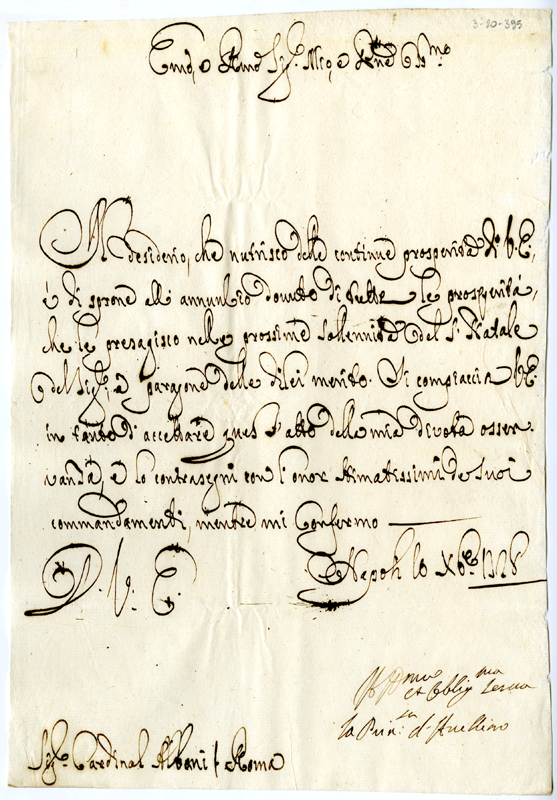 3-20-395
Emo, e Rmo Sig.r Mio, e Pne Colmo
Il desiderio, che nutrisco delle continue prosperità di V. E.,
è di sprone all' annuntio dovuto di tutte le prosperità,
che le presagisco nelle prossime Sollennità del S. Natale
del Sig.re, à paragone delle di lei merito. Si compiaccia V.E.
in tanto d' accettare quest' atto della mia divota osser-
vanza, e lo contrasegni con l' onor stimatissimi de Suoi
commandamenti, mentre mi Confermo
D. V. E.
Napoli Xbre 1728
Dma et Obligma Serua
la Prin.ssa d' Auellino
Sig.r Cardinal Albani / Roma